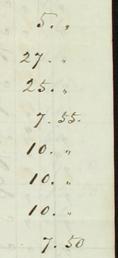 5. "
27. "
25. "
7. 55.
10. "
10. "
10. "
7. 50